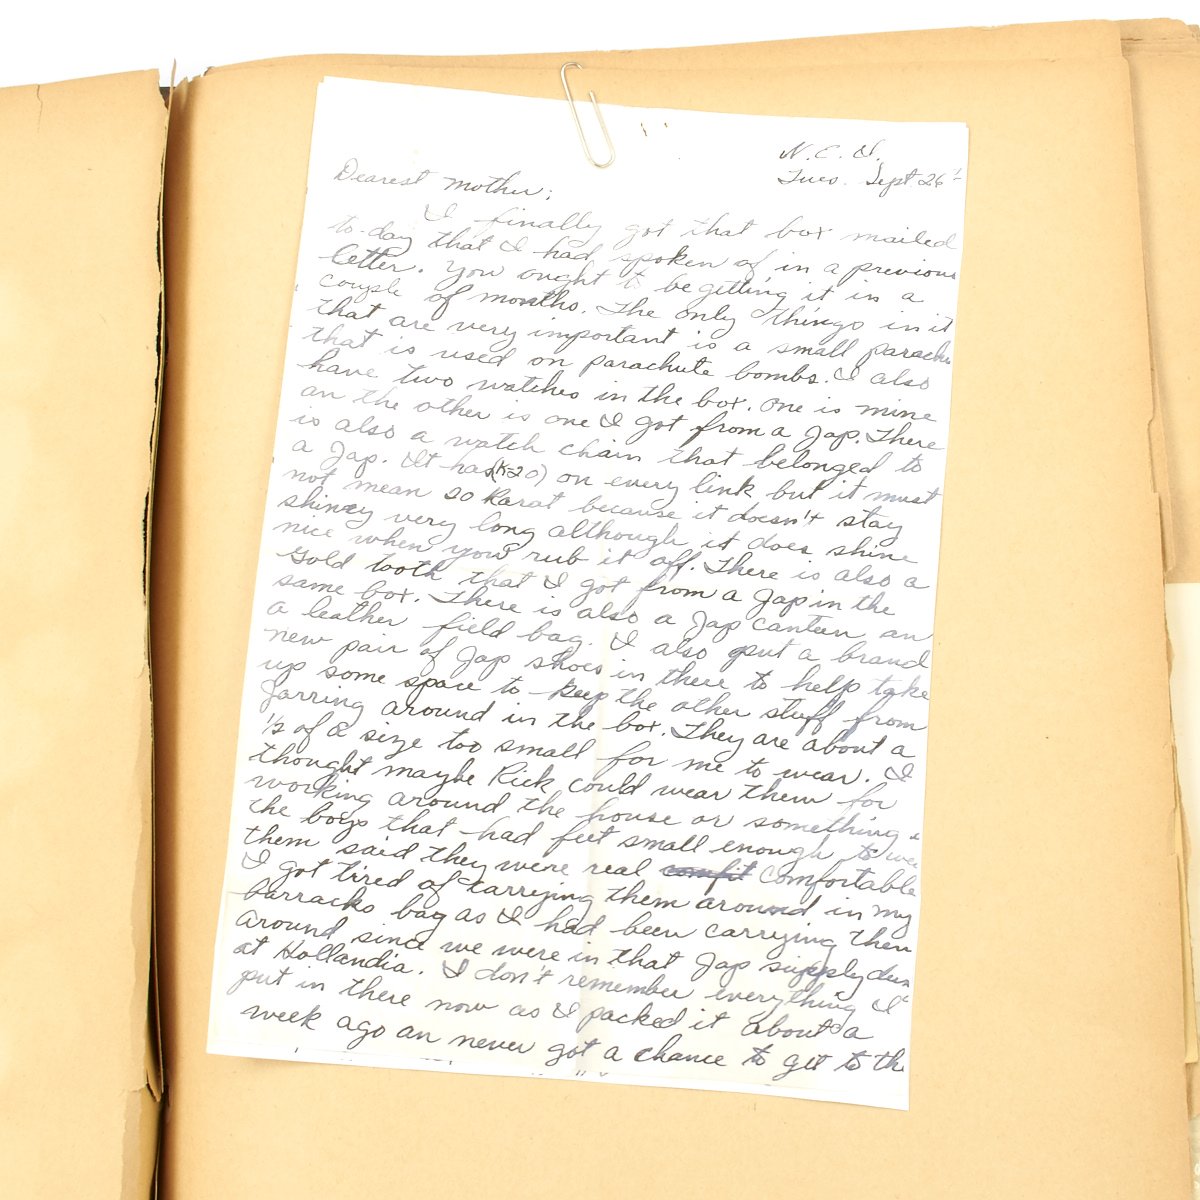 N. E. I.
Tues. Sept 26
Dearest Mother;
I finally got that box mailed
to-day that I had spoken of in a previous
letter. You ought to be getting it in a
couple of months. The only things in it
that are very important is a small parachu
that is used on parachute bombs. I also
have two watches in the box. One is mine
an the other is one I got from a Jap. There
is also a watch chain that belonged to
a Jap. It has (K-20) on every link but it must
not mean 20 Karat because it doesn't stay
shiney very long although it does shine
nice when you rub it off. There is also a
Gold tooth that I got from a Jap in the
same box. There is also a Jap canteen an
a leather field bag. I also put a brand
new pair of Jap shoes in there to help take
up some space to keep the other stuff from
jarring around in the box. They are about a
1/2 of a size too small for me to wear. I
thought maybe Rick could wear them for
working around the house or something.
the boys that had feet small enough to wea
them said they were real comfit comfortable
I got tired of carrying them around in my
barracks bag as I had been carrying them
around since we were in that Jap supply dum
at Hollandia. I don't remember everything I
put in there now as I packed it about a
week ago an never got a chance to get to th